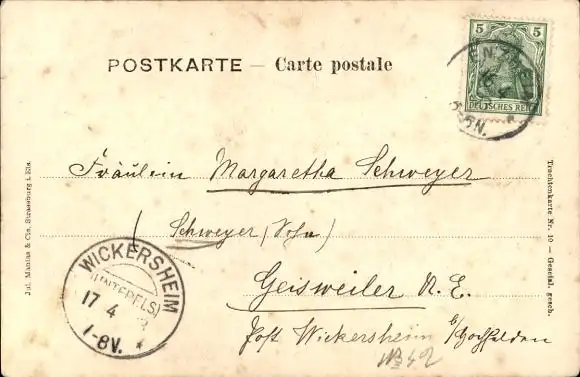 POSTKARTE – Carte postale
5 5
DEUTSCHES REICH
5-6N.
Fräulein Margaretha Schweyer
Schweyer (Sohn)
Geisweiler N. E.
Post Wickersheim b/Hochfelden
No 42
WICKERSHEIM
(UNTERELS.)
17 4
7-8V. *
Jul. Manias & Cie, Strassburg i. Els.
Trachtenkarte Nr. 10 – Gesetzl. gesch.